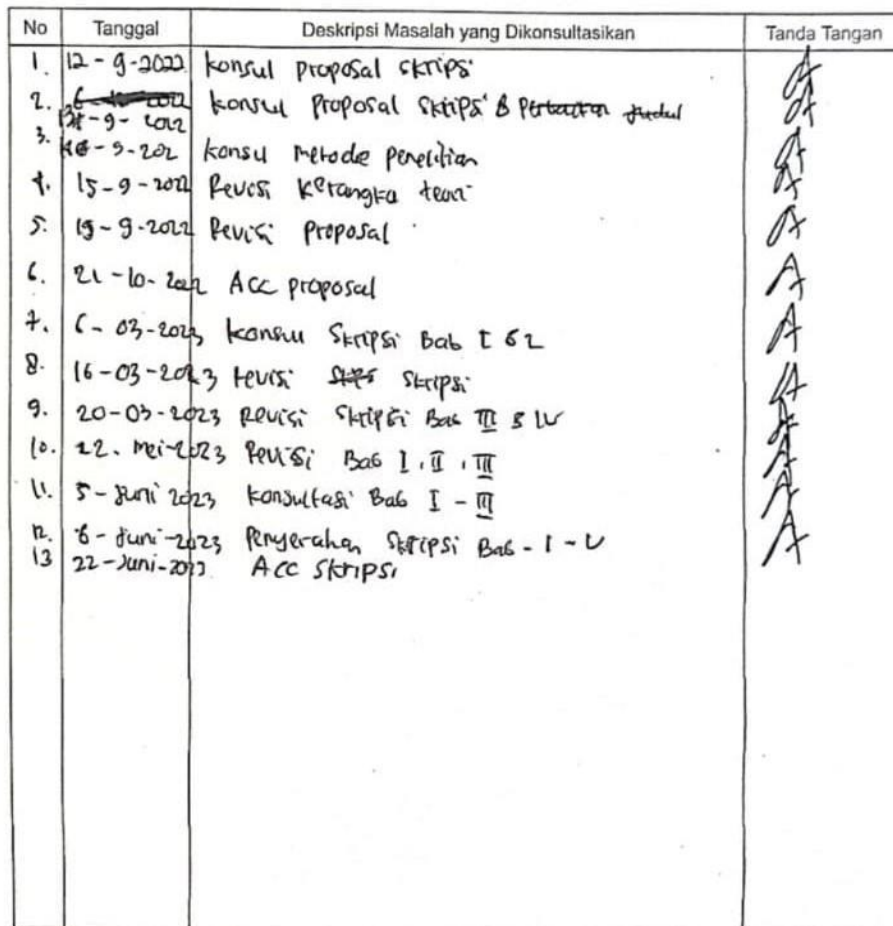 No Tanggal Deskripsi Masalah yang Dikonsultasikan Tanda Tangan
1. 12-9-2022 konsul proposal skripsi
2. konsul proposal skripsi & judul
13-9-2022
3. konsul metode penelitian
4. 15-9-2022 Revisi kerangka teori
5. 19-9-2022 Revisi proposal
6. 21-10-2022 ACC proposal
7. 6-03-2023 konsul Skripsi Bab I & 2
8. 16-03-2023 revisi Skripsi
9. 20-03-2023 Revisi Skripsi Bab III & IV
10. 22. Mei-2023 Revisi Bab I, II, III
11. 5-Juni 2023 konsultasi Bab I - III
12. 6-Juni-2023 Penyerahan Skripsi Bab - I - V
13 22-Juni-2023 ACC Skripsi